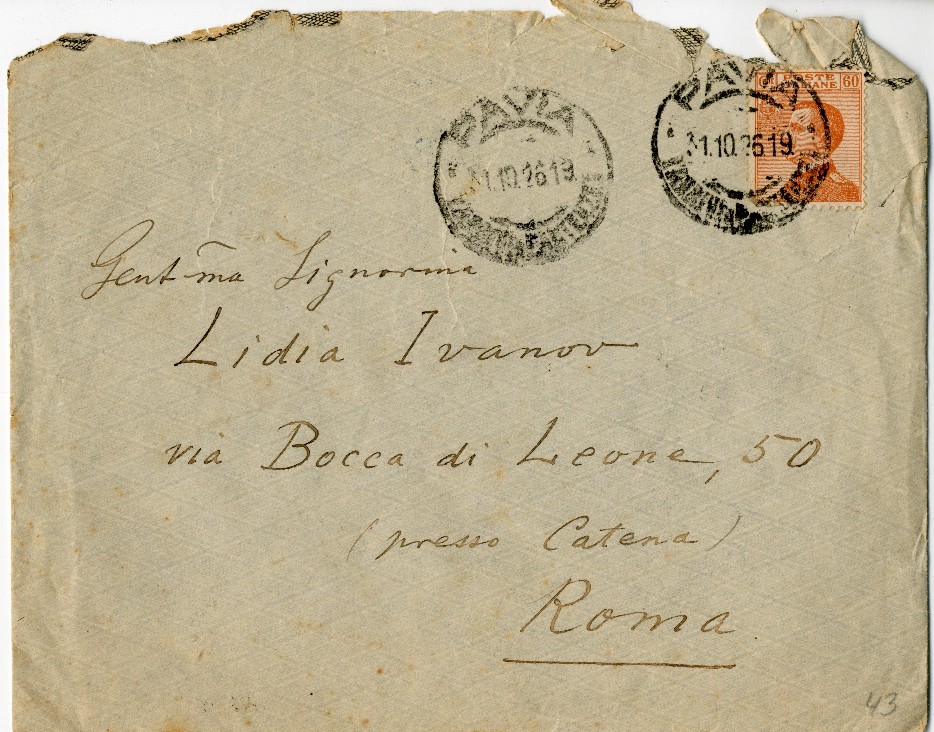 PAVIA
1.10.26 19
PAVIA
31.10.26 19
POSTE
60
Gent-ma Signorina
Lidia Ivanov
via Bocca di Leone, 50
(presso Catena)
Roma
43